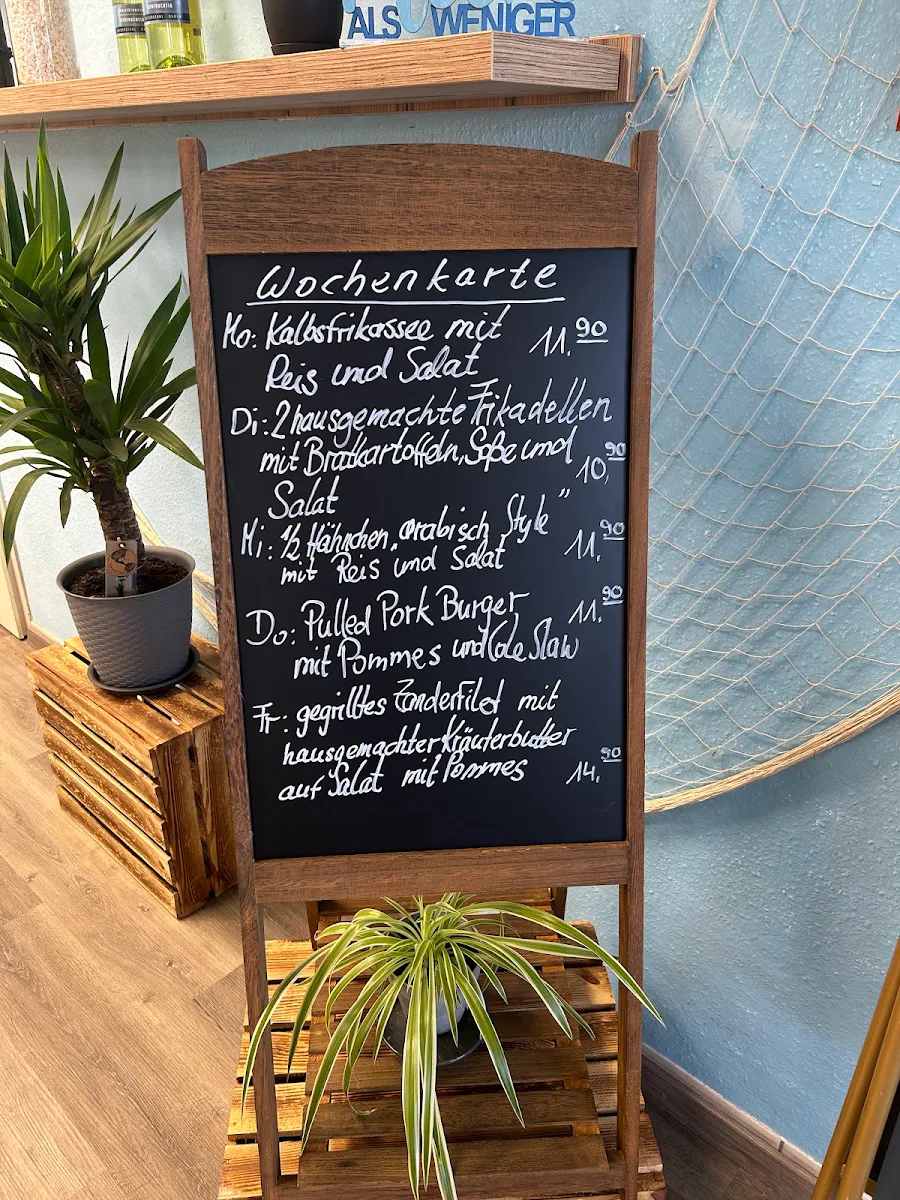 ALS WENIGER
Wochenkarte
Mo: Kalbsfrikassee mit 11,90
Reis und Salat
Di: 2 hausgemachte Frikadellen
mit Bratkartoffeln, Soße und 10,90
Salat
Mi: 1/2 Hähnchen „arabisch Style“ 11,90
mit Reis und Salat
Do: Pulled Pork Burger 11,90
mit Pommes und Cole Slaw
Fr: gegrilltes Zanderfilet mit
hausgemachter Kräuterbutter
auf Salat mit Pommes 14,90